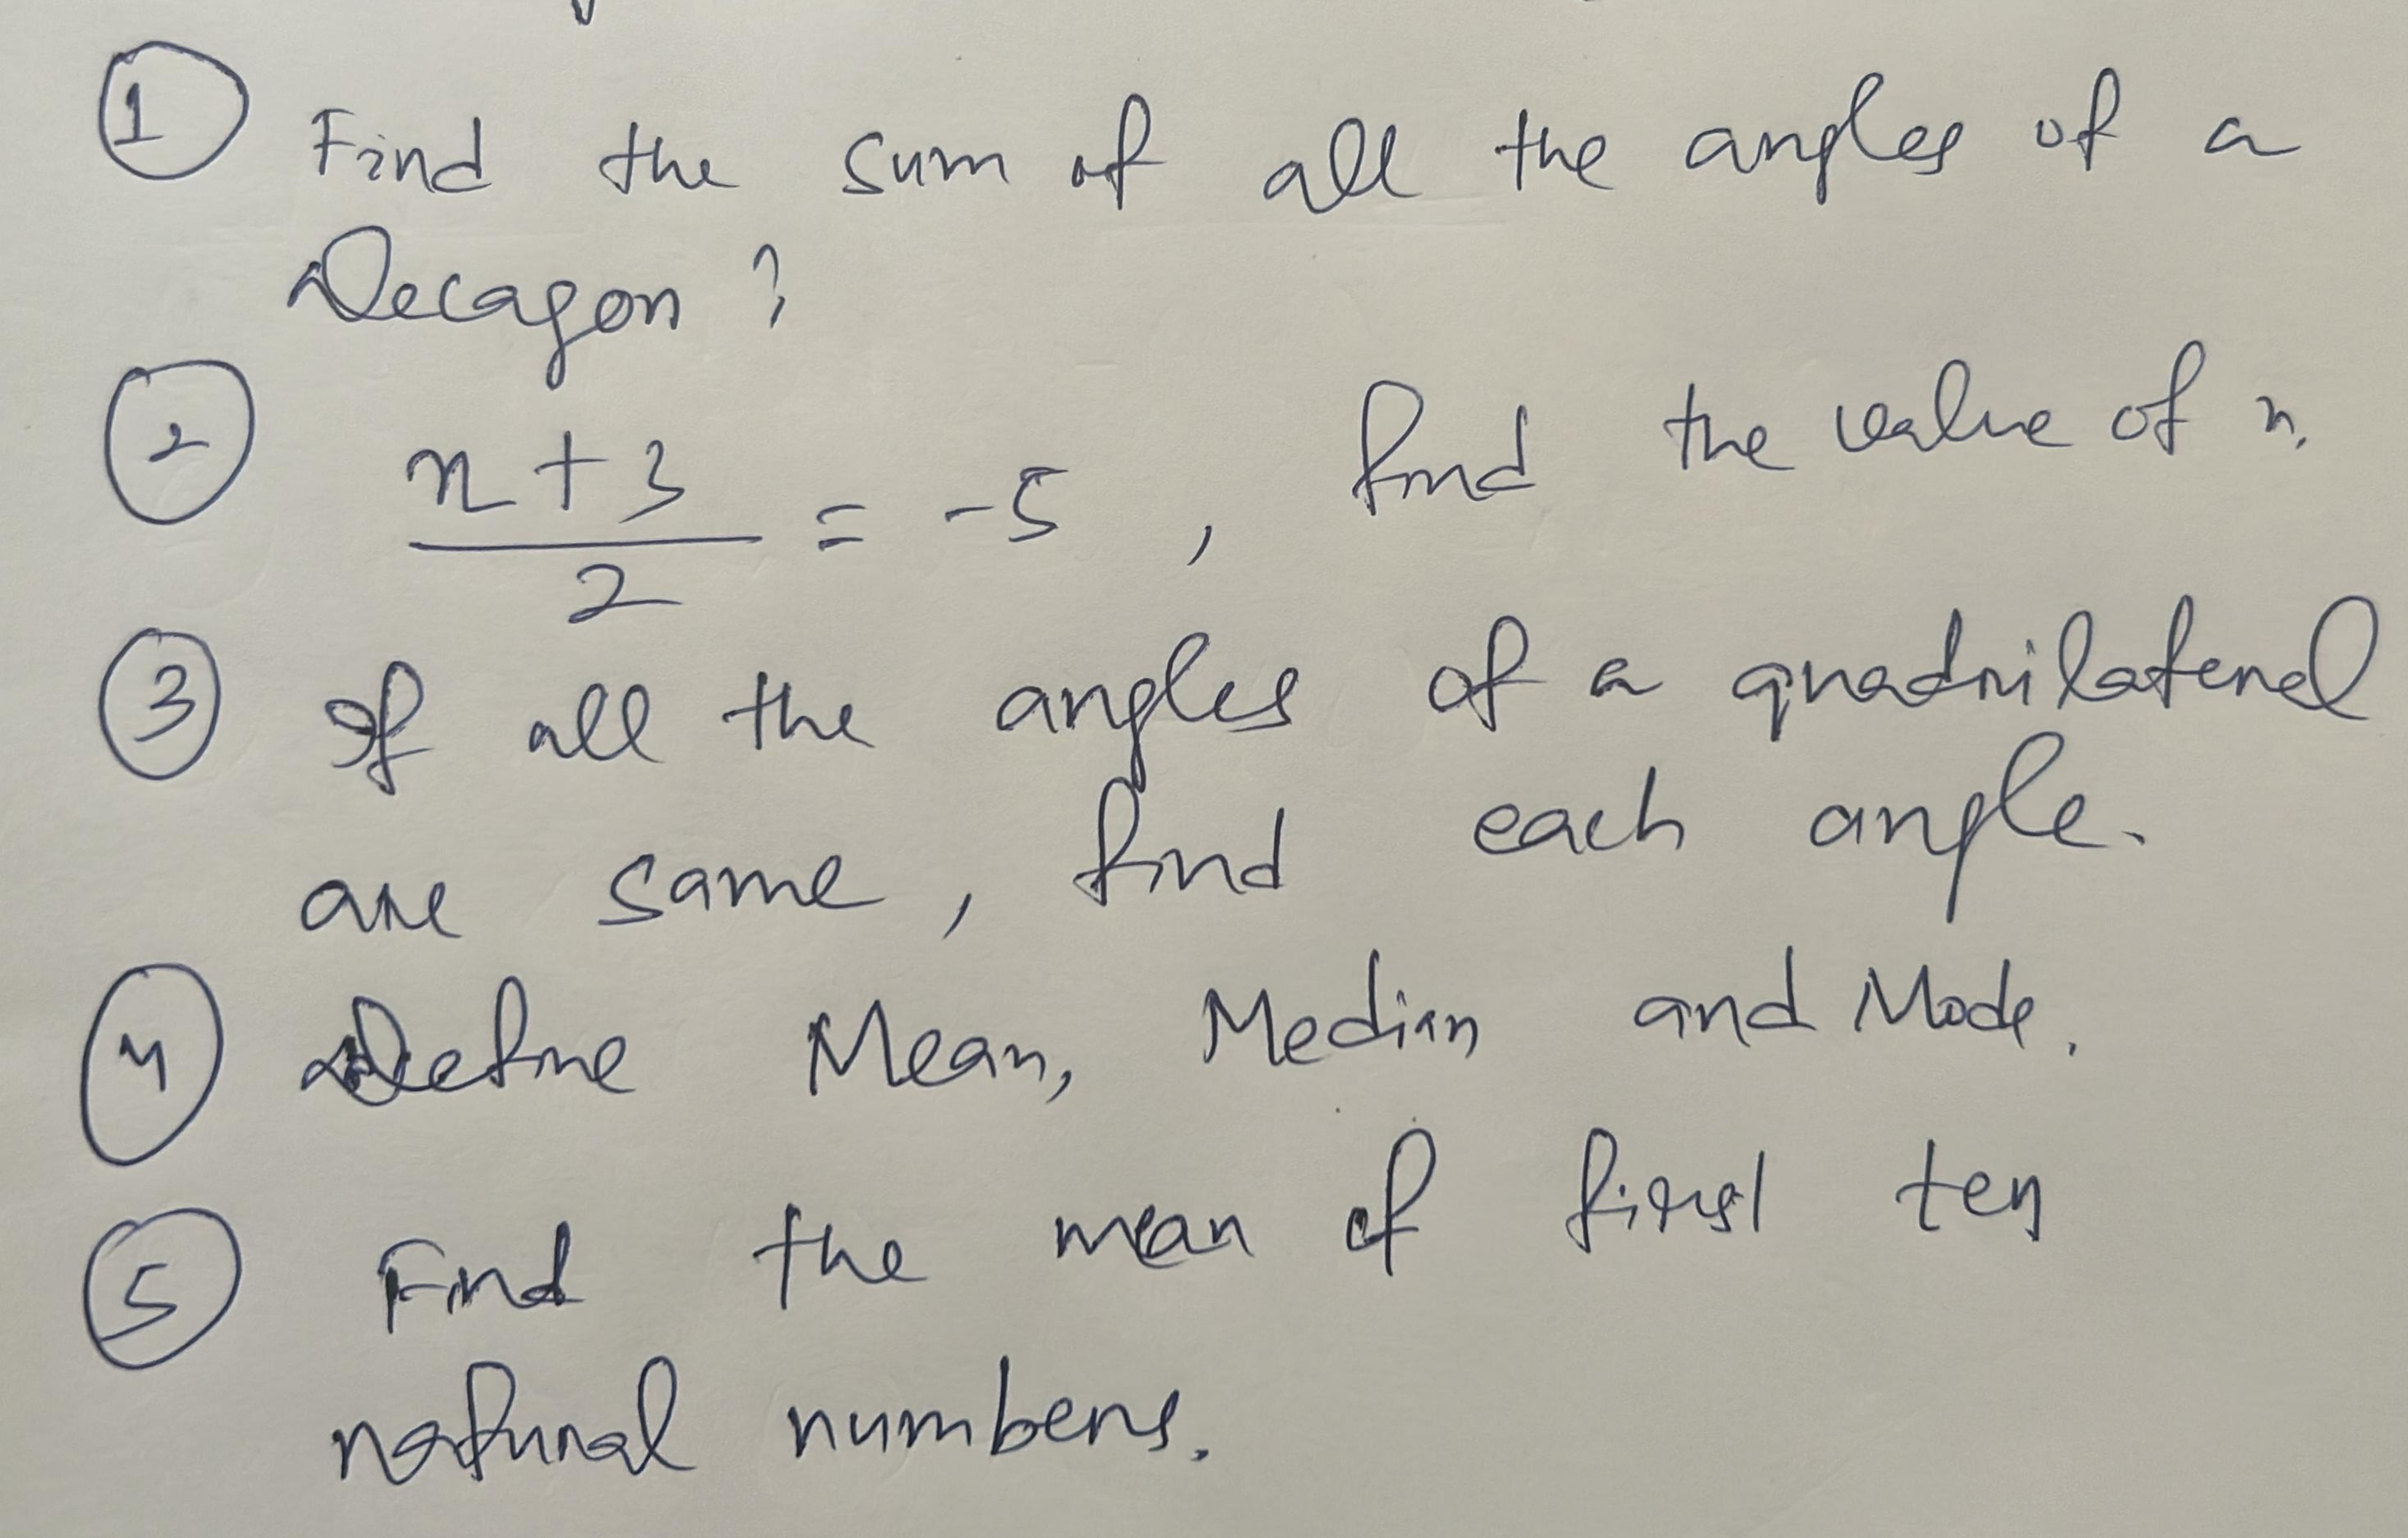 ① Find the sum of all the angles of a
Decagon?
② n+3 / 2 = -5, find the value of n.
③ If all the angles of a quadrilateral
are same, find each angle.
④ Define Mean, Median and Mode.
⑤ Find the mean of first ten
natural numbers.